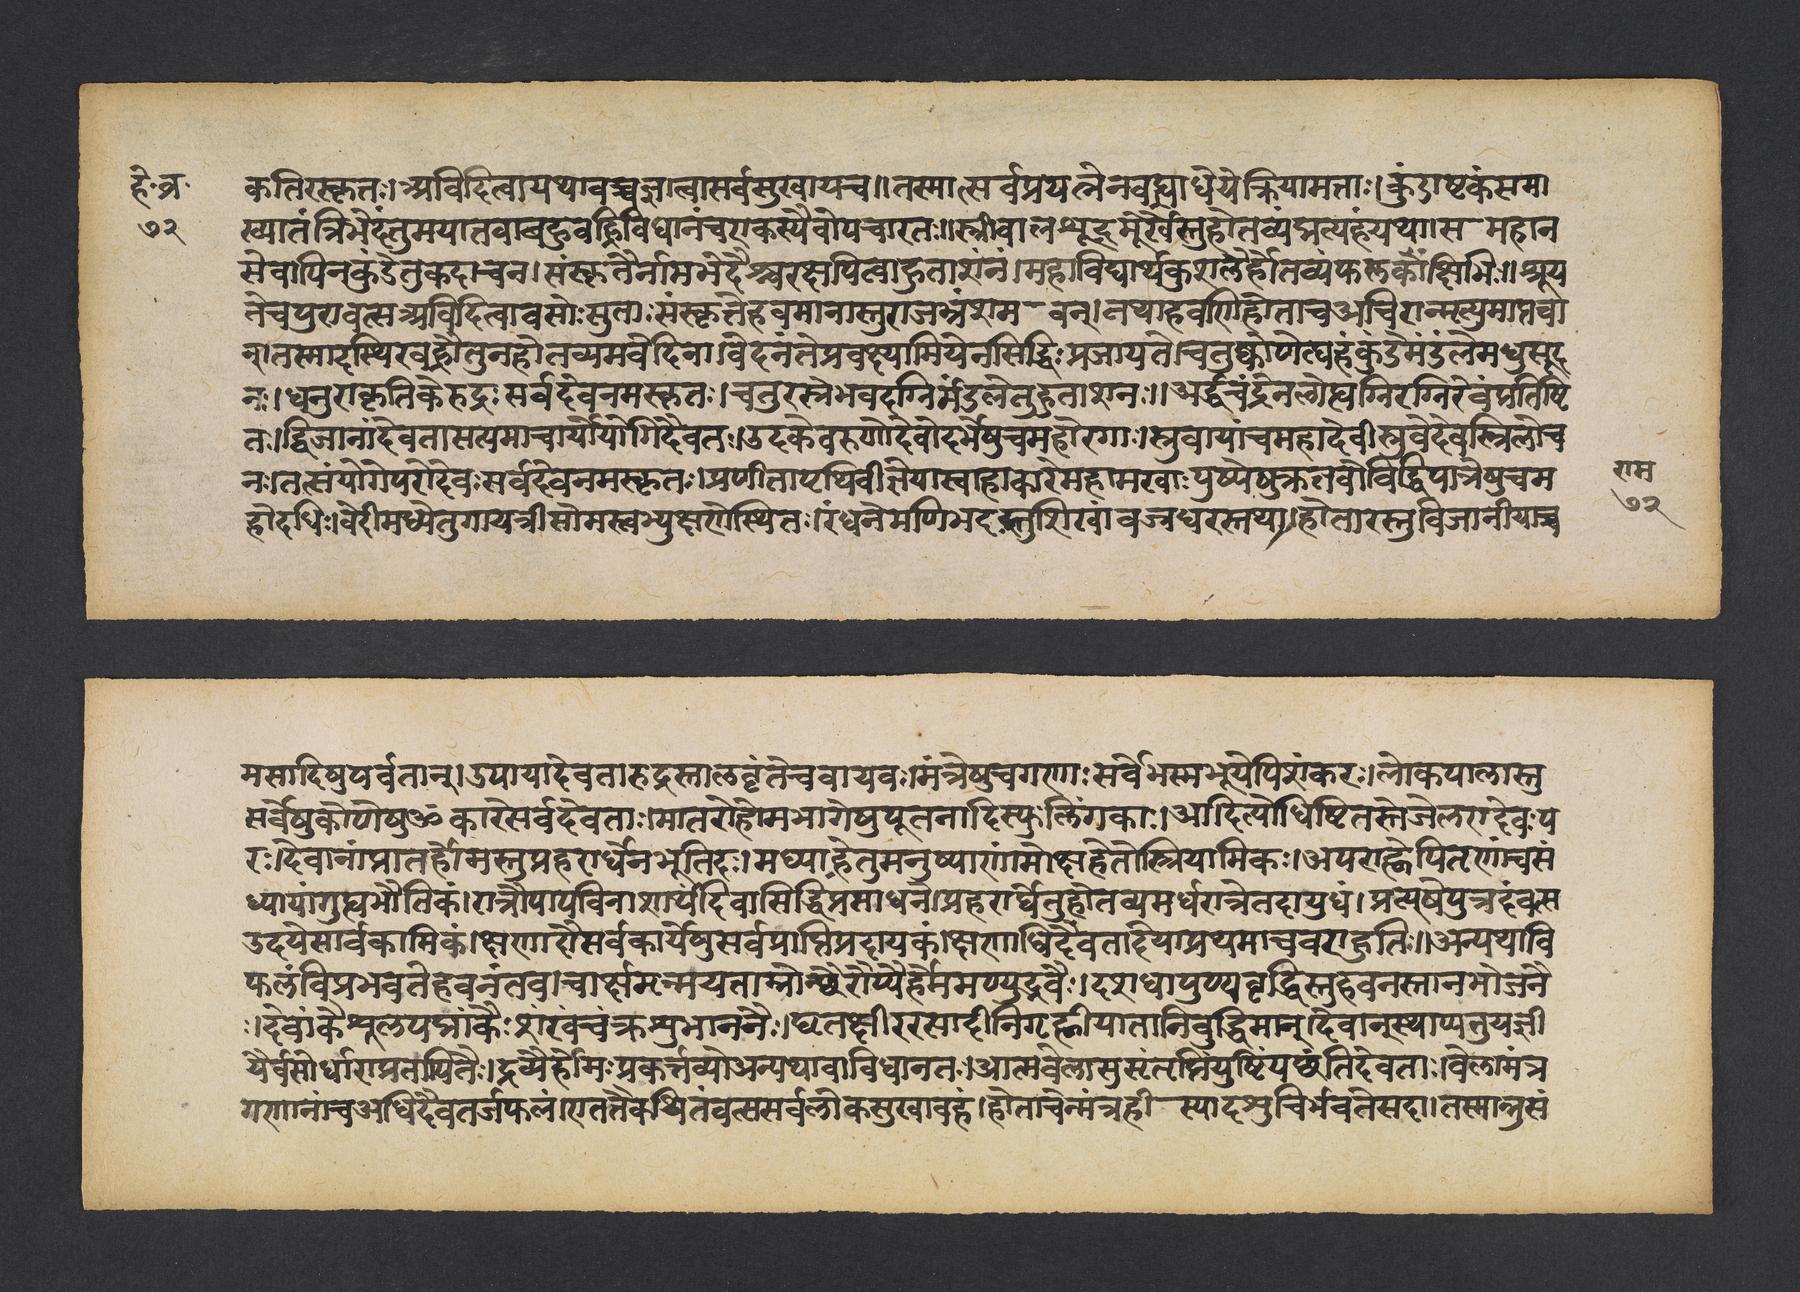 हे॰व्र॰
७२
कतिरस्कृतः। अविदित्वायथावच्चज्ञात्वासर्वसुखायच॥तस्मात्सर्वप्रयत्नेनवह्न्याधेयेक्रियामताः।कुंडाष्टकंसमा
ख्यातंत्रिभेदंतुमयातवाबहुवह्निविधानंचराकस्यैवोपचारतः॥स्त्रीबालशूद्रमूर्खैस्तुहोतव्यंप्रत्यहंयथा।स-महान
सेवापिनकुंडेतुकदाचन।संस्कृतैर्नामभेदैश्चरक्षापित्वाहुताशनं।महाविद्यार्थकुशलैर्होतव्यंफलकांक्षिभिः॥श्रूय
तेचपुरावत्सअविदित्वावसोःसुताःसंस्कृतेहवमानास्तुराजभ्रंशम-वन्।तथाहवणिहोताचअचिरान्मृत्युमाप्तवा
न्।तस्मादस्थिरवह्नौतुनहोतव्यमवेदिना।वेदनंतेप्रवक्ष्यामियेनसिद्धिःप्रजायते।चतुष्कोणेत्वहंकुंडेमंडलेमधुसूद
नः।धनुराकृतिकेरुद्रःसर्वदेवनमस्कृतः।चतुरस्रेभवदग्निर्मंडलेतुहुताशनः॥अर्द्धचंद्रेनलोत्वग्निरग्निरेवंप्रतिष्टि
तः।द्विजानांदेवतासत्यमाचार्योयोगिदैवतः।उदकेवरुणोदेवोदर्भेषुचमहोरगाः।स्रुवायांचमहादेवीस्रुवेदेवस्त्रिलोच
नः।तत्संयोगेपरोदेवःसर्वदेवनमस्कृतः।प्रणीतापृथिवीज्ञेयास्वाहाकारेमहामखाःपुष्पेषुऋतवोविद्धिपात्रेषुचम
होदधिः।वेदीमध्येतुगायत्रीसोमस्त्वभ्युक्षणेस्थितः।रंधनेमणिभदस्तुशिखांवज्रधरस्तथा।होतारस्तुविजानीयाच्च
राम
७२
मसादिषुपर्वतान्।उपायादेवतारुद्रस्तालवृंतेचवायवः।मंत्रेषुचगणाःसर्वेभस्मभूयेपिशंकरः।लोकपालास्तु
सर्वेषुकोणेषुॐकारेसर्वदेवताः।मातरोहोमभागेषुपूतनादिस्फुलिंगकाः।आदित्याधिष्टितस्तेजेलरादेवःप
रः।देवानांप्रातर्होमस्तुप्रहरार्धेनभूतिदः।मध्याह्नेतुमनुष्याणांमोक्षहेतोस्त्रियामिकः।अपराह्णेपितृणांचसं
ध्यायांगुह्यभौतिकं।रात्रौपापविनाशायदिवासिद्धिप्रसाधने।प्रहरार्धेतुहोतव्यमर्धरात्रेतदायुधं।प्रत्यूषेपुत्रदंवत्स
उदयेसार्वकामिकं।क्षणारोसर्वकार्येषुसर्वप्राप्तिप्रदायकं।क्षणाधिदेवतादेयाप्रथमाचवराहुतिः॥अन्यथावि
फलंविप्रभवतेहवनंतव।चार्क्षमृन्मयताम्रोन्थैरौप्यैर्हेममण्युद्भवैः।दशधापुण्यवृद्धिस्तुहवनस्नानभोजने
ः।देवांकैशूलपद्मांकैःशखंचंक्रशुभाननैः।घृतक्षीररसादीनिगृह्णीयातानिबुद्धिमान्।देवान्स्थाप्यतुयज्ञी
यैर्वसोर्धाराप्रतापितैः।द्रव्यैर्होमःप्रकर्त्तव्योअन्यथावाविधानतः।आत्मवेलासुसंतप्तिंपुष्टिंयछंतिदेवताः।वेलामत्र
गणानांचअधिदैवतर्जफलं।एतत्तेकथितंवत्ससर्वलोकसुखावहं।होताचेन्मंत्रही-स्यादशुचिर्भवतेसदा।तस्मात्सुसं